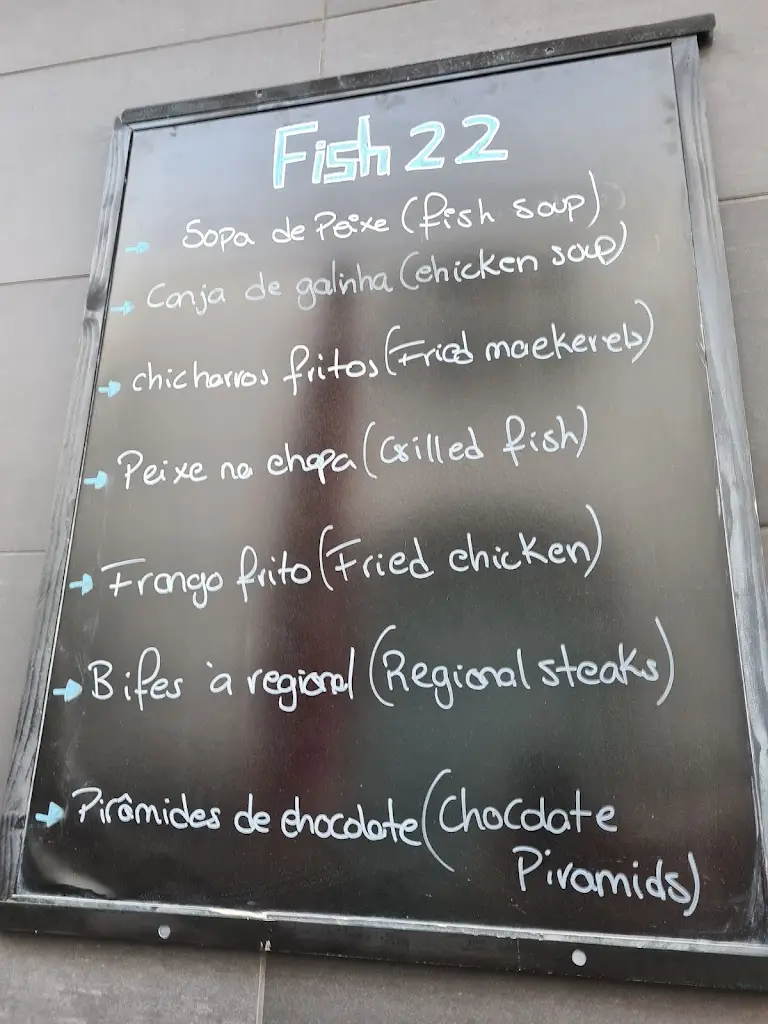 Fish 22
→ Sopa de Peixe (fish soup)
→ Canja de galinha (chicken soup)
→ chicharros fritos (Fried maekerels)
→ Peixe na chapa (Grilled fish)
→ Frango frito (Fried chicken)
→ Bifes à regional (Regional steaks)
→ Pirâmides de chocolate (Chocolate
Piramids)